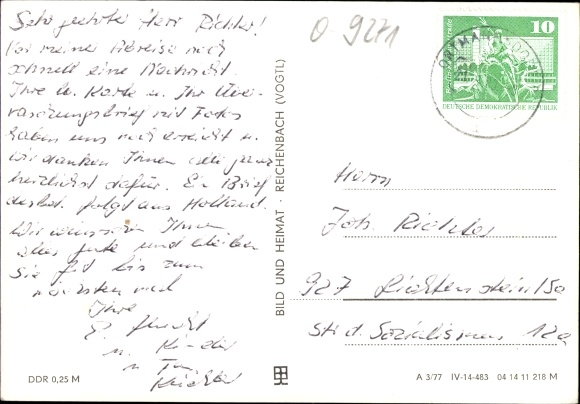 Sehr geehrter Herr Richter!
Vor meiner Abreise noch
schnell eine Nachricht.
Ihre l. Karte u. Ihr Über-
raschungsbrief mit Fotos
haben uns noch erreicht u.
wir danken Ihnen ganz
herzlichst dafür. Ein Brief
folgt aus Holland.
Wir wünschen Ihnen
alles gute und bleiben
Sie bis zum
nächsten mal
Ihre
u. Kinder
u.
O-9271
10
DEUTSCHE DEMOKRATISCHE REPUBLIK
BILD UND HEIMAT · REICHENBACH (VOGTL)
Herrn
Joh. Richter
927 Lichtenstein/Sa
Str. d. Sozialismus 12a
DDR 0,25 M
A 3/77 IV-14-483 04 14 11 218 M